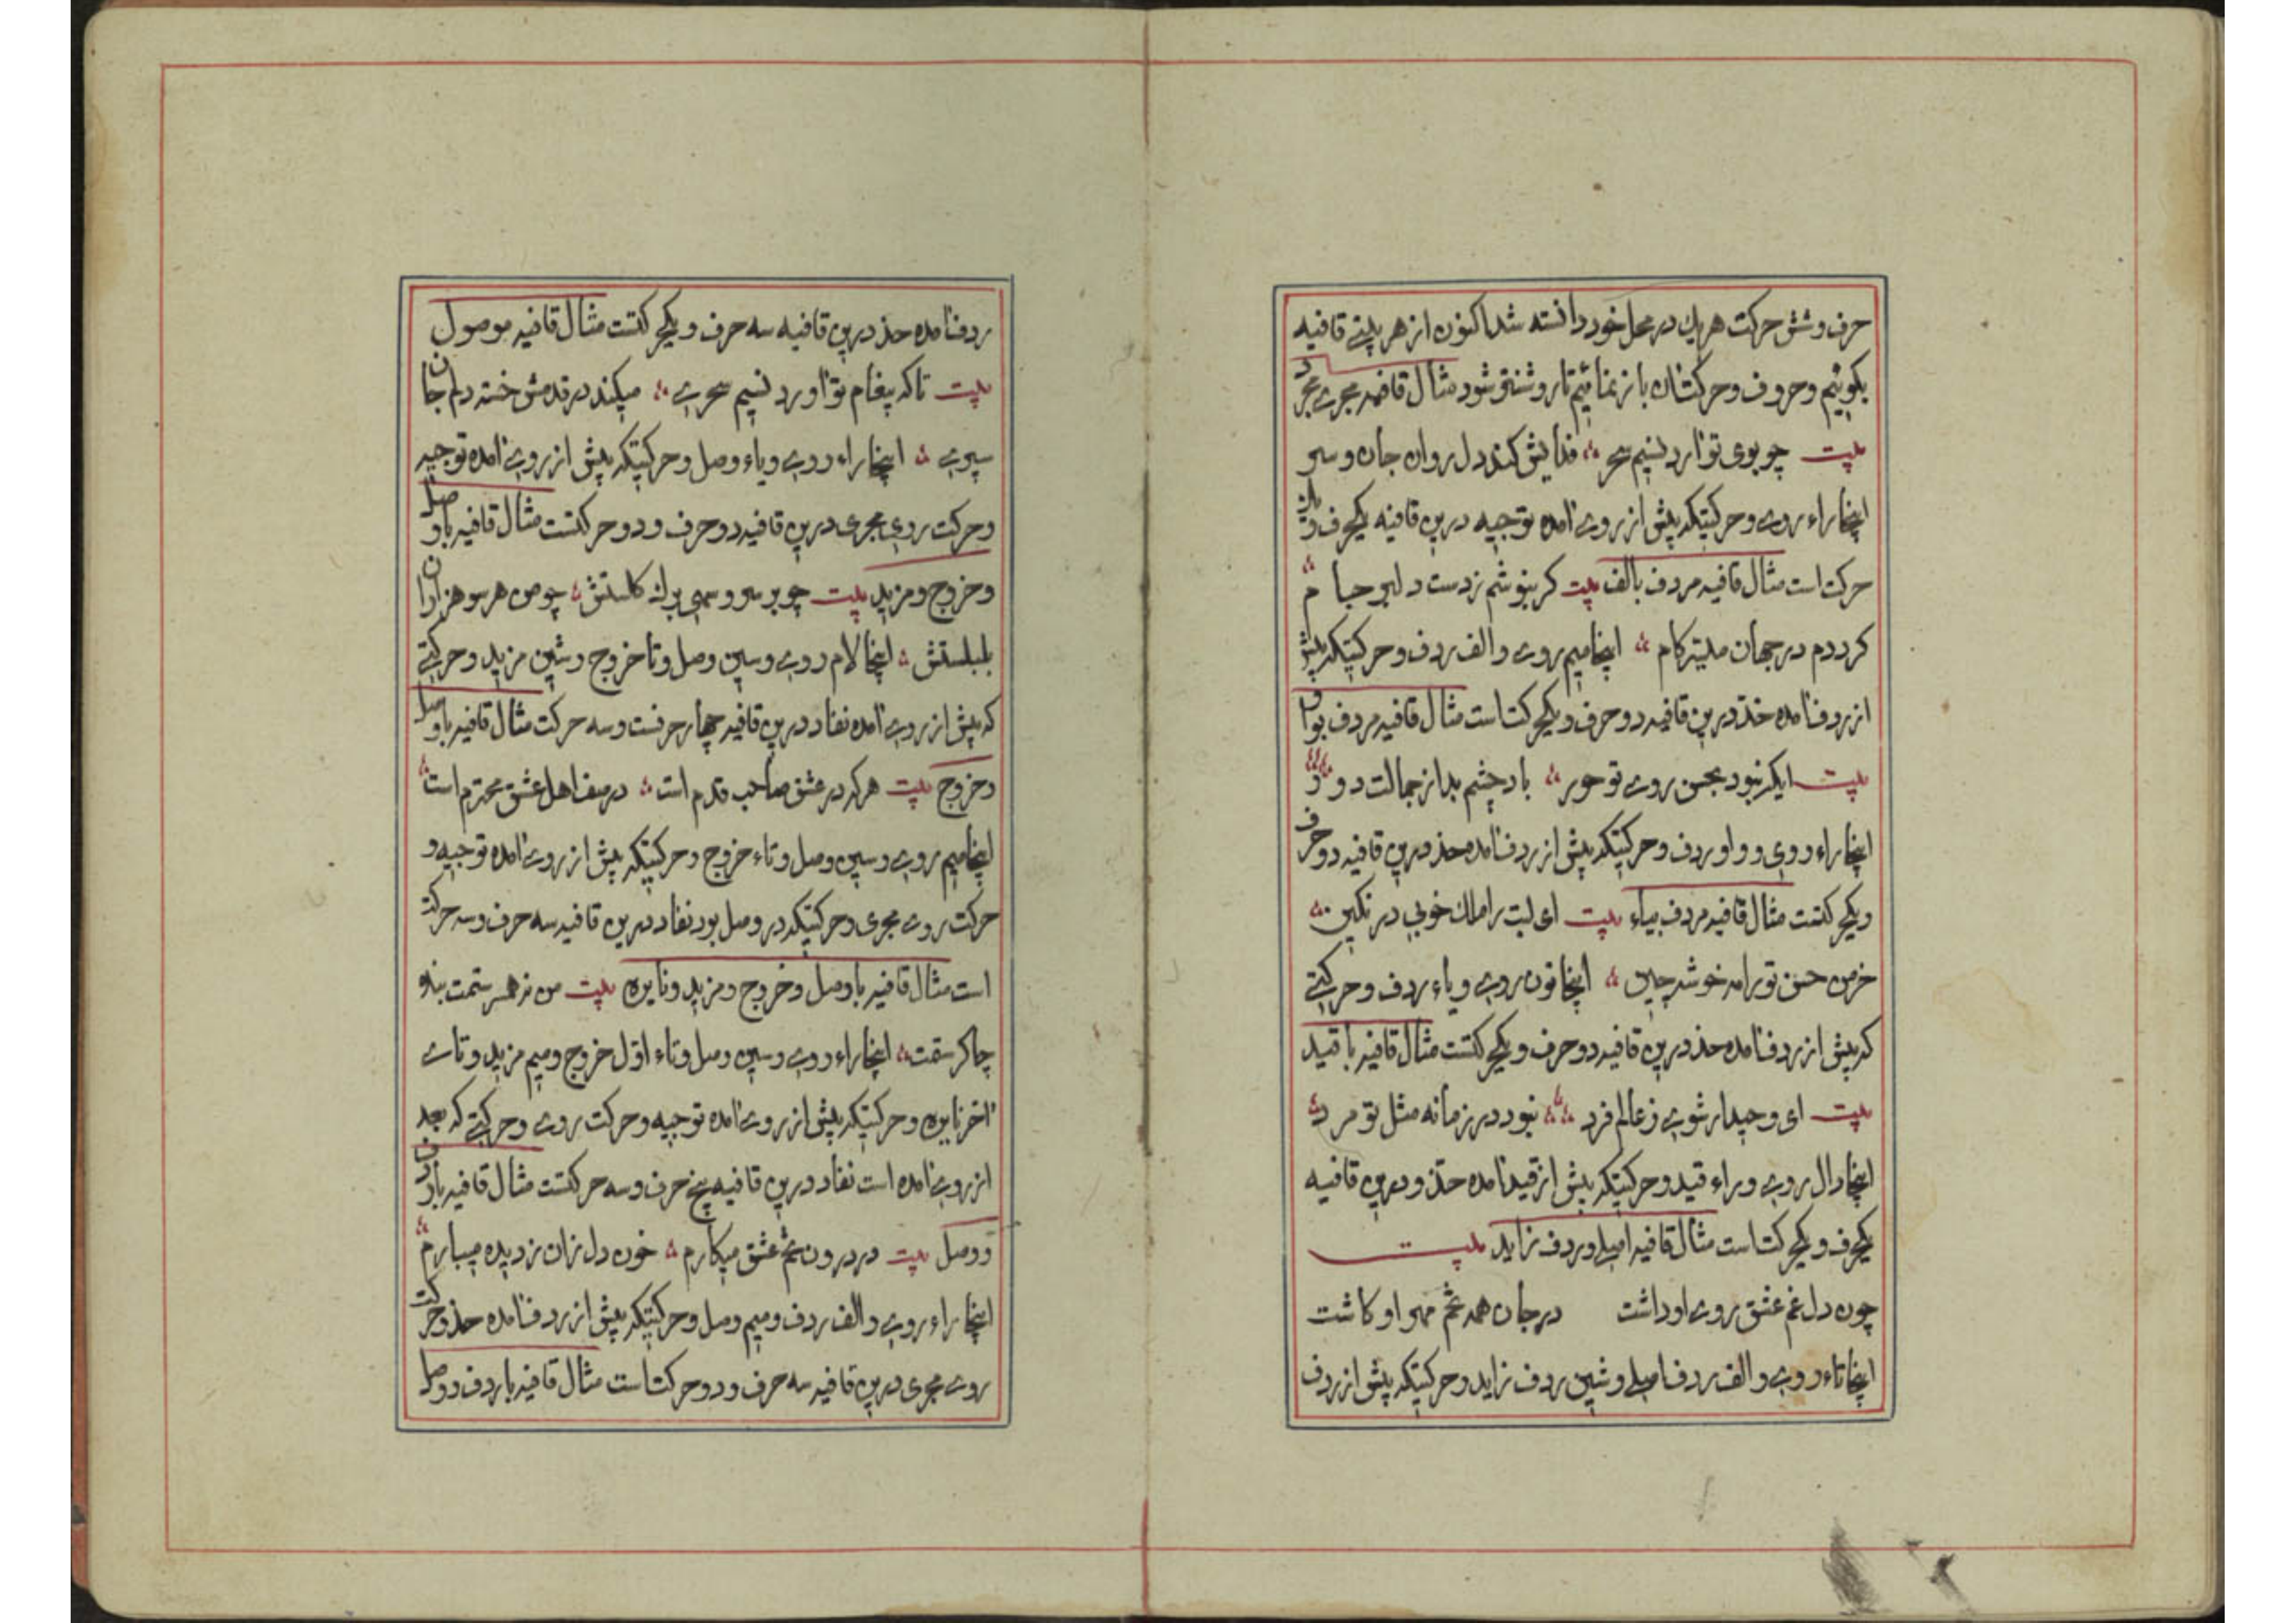 حرف و شش حرکت هر یك در محل خود دانسته شد اکنون از هر یتی قافیه
بکوئیم و حروف و حرکتشان باز نمائیم تا روشنتر شود مثال قافیه مجرد
بیت چو بوی تو آرد نسیم سحر فدایش کند دل روان جان و سر
اینجا راء روی و حرکتیکه پیش از روی آمده توجیه درین قافیه یکحرف و یك
حرکت است مثال قافیه مردف بالف بیت کر بنوشم ز دست دلبر جام
کردم در جهان میسر کام اینجا میم روی و الف ردف و حرکتیکه پیش
از ردف آمده حذو درین قافیه دو حرف و یکحرکت است مثال قافیه مردف بواو
بیت ایکه نبود بحسن روی تو حور باد چشم بد از جمالت دور
اینجا راء روی و واو ردف و حرکتیکه پیش از ردف آمده حذو درین قافیه دو حرف
و یکحرکتست مثال قافیه مردف بیاء بیت ای لبت را ملك خوبی در نکین
خرمن حسن تو را مه خوشه چین اینجا نون روی و یاء ردف و حرکتی
که پیش از ردف آمده حذو درین قافیه دو حرف و یکحرکتست مثال قافیه با قید
بیت ای وحید ار شوی ز عالم فرد نبود در زمانه مثل تو مرد
اینجا دال روی و راء قید و حرکتیکه پیش از قید آمده حذو و درین قافیه
یکحرف و یکحرکت است مثال قافیه اصلی و ردف زاید بیت
چون دل غم عشق روی او داشت در جان همه تخم مهر او کاشت
اینجا تاء روی و الف ردف اصلی و شین ردف زاید و حرکتیکه پیش از ردف
ردف آمده حذو درین قافیه سه حرف و یکحرکتست مثال قافیه موصول
بیت تا که پیغام تو آورد نسیم سحری میکند در قدمش خسته دلم جان
سپری اینجا راء روی و یاء وصل و حرکتیکه پیش از روی آمده توجیه
و حرکت روی مجری درین قافیه دو حرف و دو حرکتست مثال قافیه با وصل
و خروج و مزید بیت چو بر سرو سهی برك کلستش چو من هر سو هزاران
بلبلستش اینجا لام روی و سین وصل و تا خروج و شین مزید و حرکتی
که پیش از روی آمده نفاد درین قافیه چهار حرفست و سه حرکت مثال قافیه با وصل
و خروج بیت هر که در عشق صاحب قدم است در صف اهل عشق محترم است
اینجا میم روی و سین وصل و تاء خروج و حرکتیکه پیش از روی آمده توجیه و
حرکت روی مجری و حرکتیکه در وصل بود نفاد درین قافیه سه حرف و سه حرکت
است مثال قافیه با وصل و خروج و مزید و نایره بیت من ز هر ستمت بنده
چاکر ستمت اینجا راء روی و سین وصل و تاء اول خروج و میم مزید و تای
آخر نایره و حرکتیکه پیش از روی آمده توجیه و حرکت روی و حرکتی که بعد
از روی آمده است نفاد درین قافیه پنج حرف و سه حرکتست مثال قافیه با ردف
و وصل بیت در درون تخم عشق میکارم خون دل زان ز دیده میبارم
اینجا راء روی و الف ردف و میم وصل و حرکتیکه پیش از ردف آمده حذو و حرکت
روی مجری درین قافیه سه حرف و دو حرکت است مثال قافیه با ردف و وصل